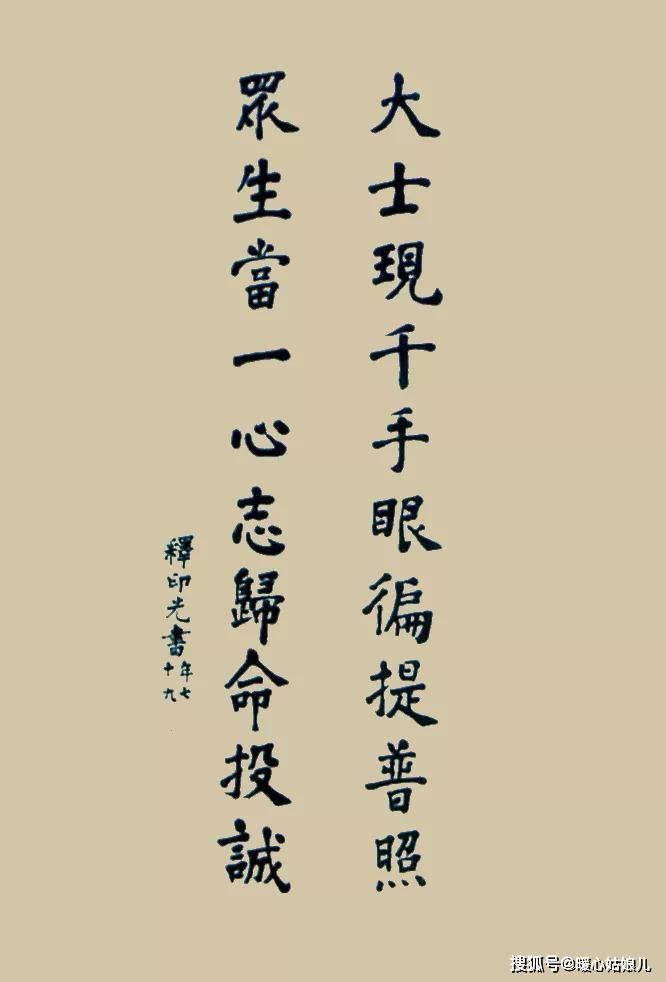 大士現千手眼徧提普照
眾生當一心志歸命投誠
釋印光書
年七
十九
搜狐号@暖心姑娘儿